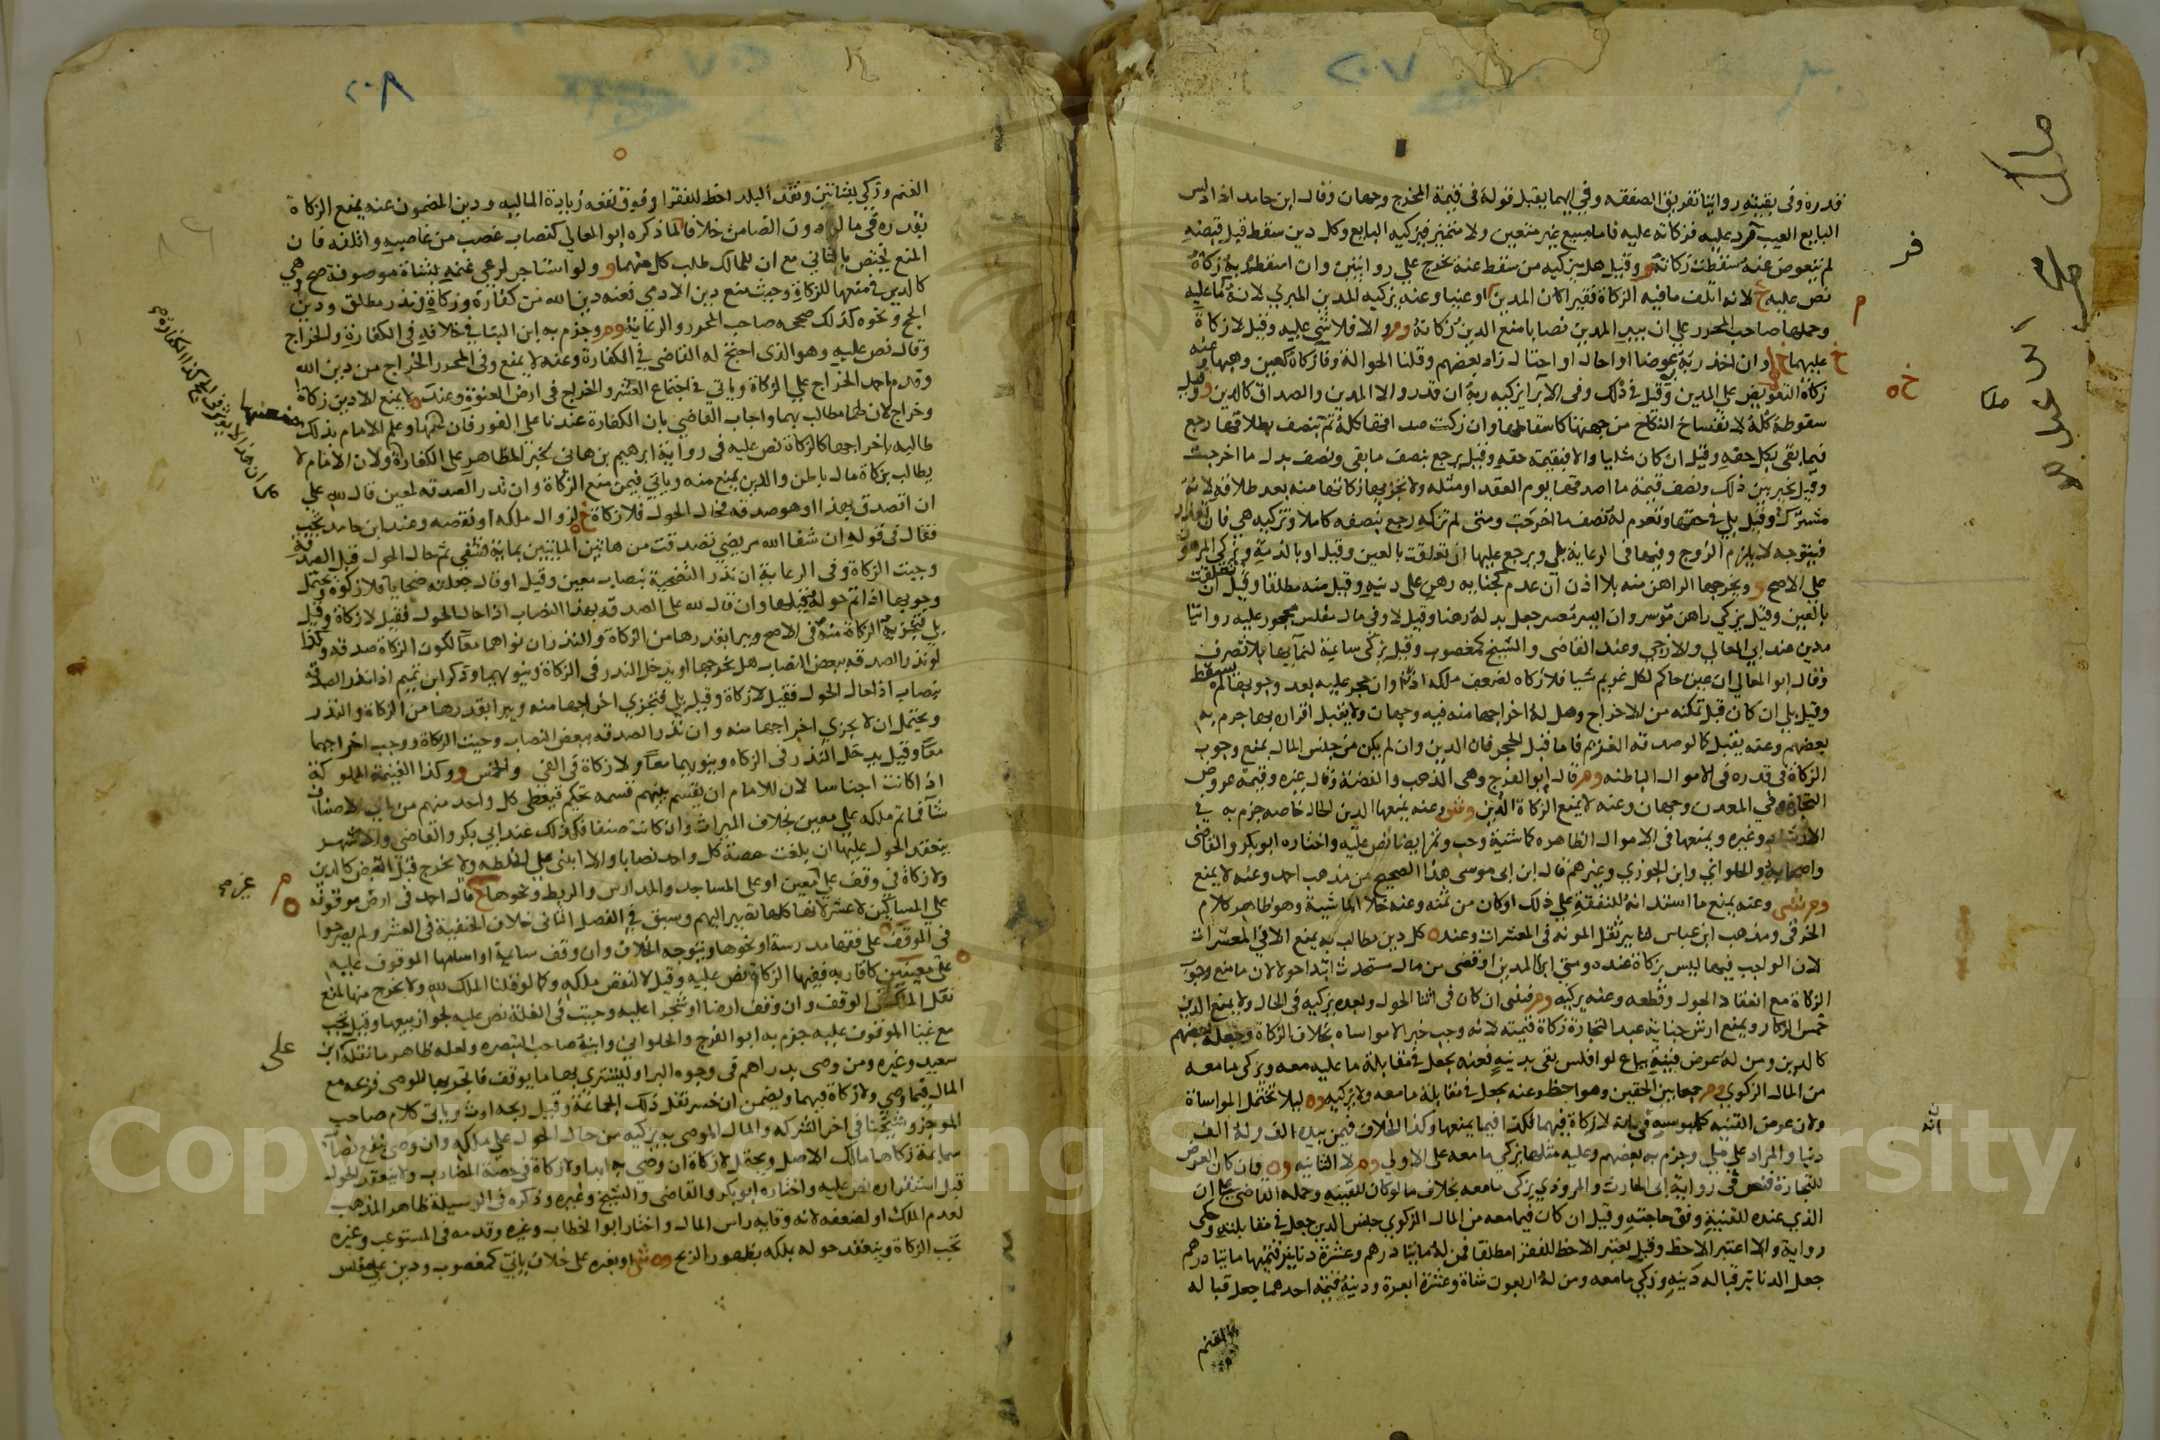 ٢٠٧
قدره وفي بقيته روايتا تفريق الصفقة وفي ايهما يقبل قوله في قيمة المخرج وجهان وقال ابن حامد اذا دلس
البايع العيب فرد عليه فزكاته عليه فاما مبيع غير متعين ولا متميز فيزكيه البايع وكل دين سقط قبل قبضه
لم يتعوض عنه سقطت زكاته و وقيل هل يزكيه من سقط عنه يخرج على روايتين وان اسقطه ربه زكاه
نص عليه خ لانه اتلف ما فيه الزكاة فقيرا كان المدين او غنيا وعنه يزكيه المدين المبري لانه ملك ما عليه
وحملها صاحب المحرر على ان بيد المدين نصابا منع الدين زكاته وم والا فلا شي عليه وقيل لا زكاة
عليهما خ وان اخذ ربه عوضا او احال او احتال زاد بعضهم وقلنا الحوالة وفا زكاه كعين وهبها وعنه
زكاة التعويض على المدين وقيل في ذلك وفي الابرا يزكيه ربه ان قدر والا المدين والصداق كالدين وقيل
سقوطه كله لانفساخ النكاح من جهتها كاسقاطها وان زكت صداقها كله ثم تنصف بطلاقها رجع
فيما بقي بكل حقه وقيل ان كان مثليا والا فبقيمة حقه وقيل يرجع بنصف ما بقي ونصف بدل ما اخرجت
وقيل يخير بين ذلك ونصف قيمة ما اصدقها يوم العقد او مثله ولا تجزيها زكاتها منه بعد طلاقه لانه
مشترك وقيل بلى في حقها وتغرم له نصف ما اخرجت ومتى لم تزكه رجع بنصفه كاملا وتزكيه هي فان تعذر
فيتوجه لا يلزم الزوج وفيها في الرعاية بلى ويرجع عليها ان تعلقت بالعين وقيل او بالذمة ويزكي المرهون
على الاصح و ويخرجها الراهن منه بلا اذن ان عدم كجناية رهن على دينه وقيل منه مطلقا وقيل ان تعلقت
بالعين وقيل يزكي راهن موسر وان ايسر معسر جعل بدله رهنا وقيل لا وفي مال مفلس محجور عليه روايتا
مدين عند ابي المعالي والازجي وعند القاضي والشيخ كمغصوب وقيل يزكي سايمة لنمايها بلا تصرف
وقال ابو المعالي ان عين حاكم لكل غريم شيا فلا زكاه لضعف ملكه اذن وان حجر عليه بعد وجوبها لم تسقط
وقيل بلى ان كان قبل تمكنه من الاخراج وهل له اخراجها منه فيه وجهان ولا يقبل اقراره بها جزم به
بعضهم وعنه يقبل كما لو صدقه الغريم فاما قبل الحجر فان الدين وان لم يكن من جنس المال يمنع وجوب
الزكاة في قدره في الاموال الباطنه وم قال ابو الفرج وهي الذهب والفضة وقال غيره وقيمة عروض
التجارة وفي المعدن وجهان وعنه لا يمنع الزكاة الدين وش وعنه يمنعها الدين الحال خاصة جزم به في
الارشاد وغيره ويمنعها في الاموال الظاهره كماشية وحب وثمر ايضا نص عليه واختاره ابو بكر والقاضي
واصحابه والحلواني وابن الجوزي وغيرهم قال ابن ابي موسى هذا الصحيح من مذهب احمد وعنه لا يمنع
وم ش وعنه يمنع ما استدانه للنفقة على ذلك او كان من ثمنه وعنه خلا الماشية وهو ظاهر كلام
الخرقي ومذهب ابن عباس لتاثير ثقل المونه في المعشرات وعند ه كل دين مطالب به يمنع الا في المعشرات
لان الواجب فيها ليس بزكاة عنده ومتى ابرا المدين او قضى من مال مستحدث ابتدا حولا لان ما منع وجوب
الزكاة مع انعقاد الحول وقطعه وعنه يزكيه وم فيبنى ان كان في اثنا الحول وبعده يزكيه في الحال ولا يمنع الدين
خمس الركاز ويمنع ارش جناية عبد التجارة زكاة قيمته لانه وجب جبرا لا مواساه بخلاف الزكاة وجعله بعضهم
كالدين ومن له عرض قنية يباع لو افلس يفي بدينه فعنه يجعل في مقابلة ما عليه معه ويزكي ما معه
من المال الزكوي وم جمعا بين الحقين وهو احظ وعنه يجعل في مقابلة ما معه ولا يزكيه وه ليلا تختل المواساة
ولان عرض القنيه كملبوسه في انه لا زكاة فيهما فكذا فيما يمنعها وكذا الخلاف فيمن بيده الف وله الف
دينا والمراد على ملي وجزم به بعضهم وعليه مثلها يزكي ما معه على الاولى وم لا الثانيه وه فان كان العرض
للتجارة فنص في رواية ابي الحارث والمروذي يزكي ما معه بخلاف ما لو كان للقنيه وحمله القاضي على ان
الذي عنده للقنية وفق حاجته وقيل ان كان فيما معه من المال الزكوي جنس الدين جعل في مقابلته وحكى
رواية والا اعتبر الاحظ وقيل يعتبر الاحظ للفقرا مطلقا فمن له مائتا درهم وعشرة دنانير قيمتها مائتا درهم
جعل الدنانير قباله دينه وزكى ما معه ومن له اربعون شاة وعشرة ابعرة ودينه قيمة احدهما جعل قباله
الغنم
فر
م
خ
خ ه
انه
٢٠٨
الغنم وزكى بشاتين ونقد البلد احظ للفقرا وفوق نفعه زيادة الماليه ودين المضمون عنه يمنع الزكاة
بقدره في ماله دون الضامن خلافا لما ذكره ابو المعالي كنصاب غصب من غاصبه واتلفه فان
المنع يختص بالثاني مع ان للمالك طلب كل منهما و ولو استاجر لرعي غنمه بشاة موصوفة صح وهي
كالدين في منعها للزكاة وحيث منع دين الادمي فعنه دين الله من كفارة وزكاة ونذر مطلق ودين
الحج ونحوه كذلك صححه صاحب المحرر والرعاية وم وجزم به ابن البنا في خلافه في الكفارة والخراج
وقال نص عليه وهو الذي احتج له القاضي في الكفارة وعنه لا يمنع وفي المحرر الخراج من دين الله
وقدم احمد الخراج على الزكاة وياتي في اجتماع العشر والخراج في ارض العنوة وعند ه لا يمنع الا دين زكاة
وخراج لان لهما مطالب بهما واجاب القاضي بان الكفارة عندنا على الفور فان منعها وعلم الامام بذلك
طالبه باخراجها كالزكاة نص عليه في رواية ابراهيم بن هاني يجبر المظاهر على الكفارة ولان الامام لا
يطالب بزكاة مال باطن والدين يمنع منه وياتي فيمن منع الزكاة وان نذر الصدقه لمعين قال لله علي
ان اتصدق بهذا او هو صدقه فحال الحول فلا زكاة خ لزوال ملكه او نقصه وعند ابن حامد تجب
فقال في قوله ان شفا الله مريضي تصدقت من هاتين المايتين بماية فشفي ثم حال الحول قبل الصدقه
وجبت الزكاة وفي الرعاية ان نذر التضحية بنصاب معين وقيل او قال جعلته ضحايا فلا زكوة ويحتمل
وجوبها اذا تم حوله قبلها وان قال لله علي الصدقه بهذا النصاب اذا حال الحول فقيل لا زكاة وقيل
بلى فتجزيه الزكاة منه في الاصح ويبرا بقدرها من الزكاة والنذر ان نواهما معا لكون الزكاة صدقه وكذا
لو نذر الصدقه ببعض النصاب هل يخرجهما او يدخل النذر في الزكاة وينويهما وذكر ابن تميم اذا نذر الصدقه
بنصاب اذا حال الحول فقيل لا زكاة وقيل بلى فتجزي اخراجها منه ويبرا بقدرها من الزكاة والنذر
ويحتمل ان لا يجزي اخراجها منه وان نذر الصدقه ببعض النصاب وجبت الزكاة ووجب اخراجهما
معا وقيل يدخل النذر في الزكاه وينويهما معا ولا زكاة في الفي والخمس و وكذا الغنيمة المملوكة
اذا كانت اجناسا لان للامام ان يقسم بينهم قسمة تحكم فيعطي كل واحد منهم من باقي الاصناف
شا فما تم ملكه على معين بخلاف الميراث وان كانت صنفا فكذلك عند ابي بكر والقاضي والاشهر
ينعقد الحول عليها ان بلغت حصة كل واحد نصابا والا ابتنى على الخلطه ولا يخرج قبل القبض كالدين
ولا زكاة في وقف على غير معين او على المساجد والمدارس والربط ونحوها خ قال احمد في ارض موقوفة
على المساكين لا عشر لانها كلها تصير اليهم وسبق في الفصل الثاني خلاف الحنفية في العشر ولم يصرحوا
في الموقوف على فقها مدرسة او نحوها ويتوجه الخلاف وان وقف سايمة او اسامها الموقوف عليه
على معينين كاقاربه ففيها الزكاة نص عليه وقيل لا لنقص ملكه وكما لو قلنا الملك لله ولا يخرج منها لمنع
نقل الملك في الوقف وان وقف ارضا او شجرا عليه وجبت في الغلة نص عليه لجواز بيعها وقيل تجب
مع غنا الموقوف عليه جزم به ابو الفرج والحلواني وابنه صاحب التبصره ولعله ظاهر ما نقله ابن
سعيد وغيره ومن وصى بدراهم في وجوه البر او ليشتري بها ما يوقف فاتجر بها الموصى فربحه مع
المال فيما وصى ولا زكاة فيهما ويضمن ان خسر نقل ذلك الجماعة وقيل ربحه ارث وياتي كلام صاحب
الموجز وشيخنا في اخر الشركه والمال الموصى به يزكيه من حال الحول على ملكه وان وصى بنفع نصاب
سايمة زكاها مالك الاصل ويحتمل لا زكاة ان وصى بها ابدا ولا زكاة في حصة المضارب ولا ينعقد الحول
قبل استقراره نص عليه واختاره ابو بكر والقاضي والشيخ وغيره وذكره في الوسيلة ظاهر المذهب
لعدم الملك او لضعفه لانه وقاية راس المال واختار ابو الخطاب وغيره وقدمه في المستوعب وغيره
تجب الزكاة وينعقد حوله بملكه بظهور الربح وه ش او بغيره على خلاف ياتي كمغصوب ودين على مفلس
منعها
م
غير صح
على